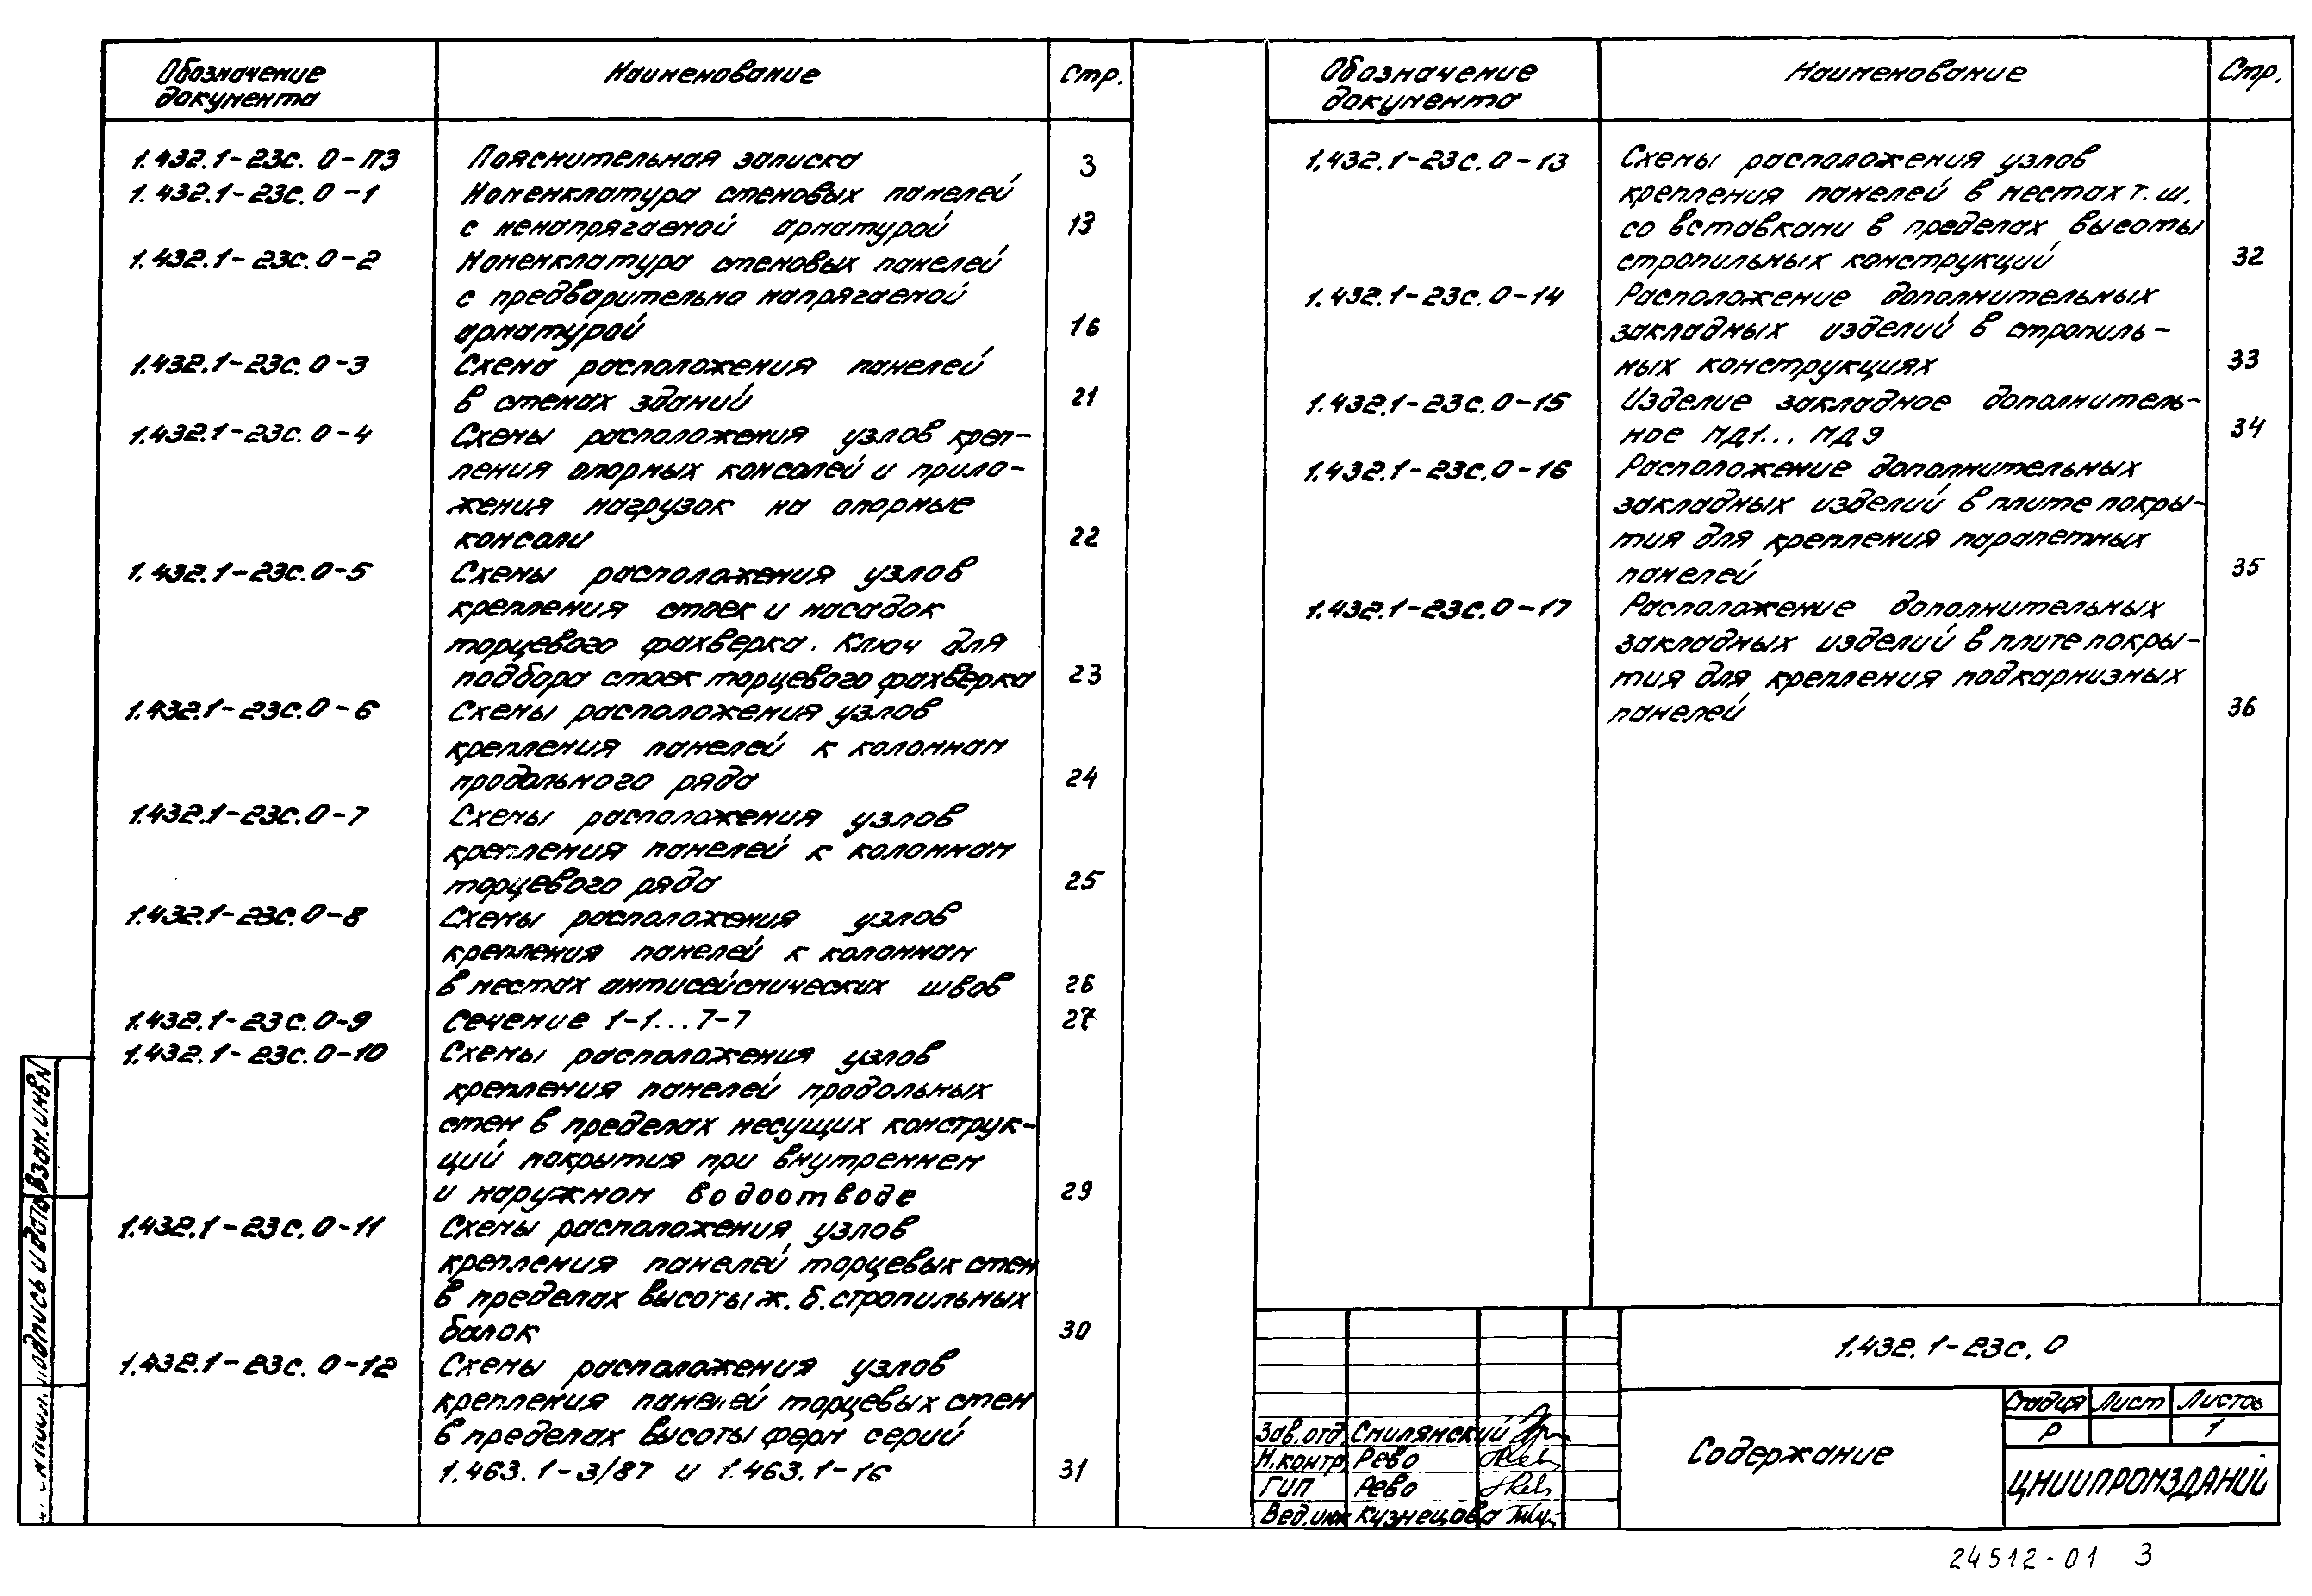 Обозначение документа Наименование Стр.
1.432.1-23с. 0-ПЗ Пояснительная записка 3
1.432.1-23с. 0-1 Номенклатура стеновых панелей
с ненапрягаемой арматурой 13
1.432.1-23с. 0-2 Номенклатура стеновых панелей
с предварительно напрягаемой
арматурой 16
1.432.1-23с. 0-3 Схема расположения панелей
в стенах зданий 21
1.432.1-23с. 0-4 Схемы расположения узлов креп-
ления опорных консолей и прило-
жения нагрузок на опорные
консоли 22
1.432.1-23с.0-5 Схемы расположения узлов
крепления стоек и насадок
торцевого фахверка. Ключ для
подбора стоек торцевого фахверка 23
1.432.1-23с.0-6 Схемы расположения узлов
крепления панелей к колоннам
продольного ряда 24
1.432.1-23с.0-7 Схемы расположения узлов
крепления панелей к колоннам
торцевого ряда 25
1.432.1-23с.0-8 Схемы расположения узлов
крепления панелей к колоннам
в местах антисейсмических швов 26
1.432.1-23с.0-9 Сечение 1-1...7-7 27
1.432.1-23с.0-10 Схемы расположения узлов
крепления панелей продольных
стен в пределах несущих конструк-
ций покрытия при внутреннем
и наружном водоотводе 29
1.432.1-23с.0-11 Схемы расположения узлов
крепления панелей торцевых стен
в пределах высоты ж.б.стропильных
балок 30
1.432.1-23с. 0-12 Схемы расположения узлов
крепления панелей торцевых стен
в пределах высоты ферм серий
1.463.1-3/87 и 1.463.1-16 31
Обозначение документа Наименование Стр.
1.432.1-23с.0-13 Схемы расположения узлов
крепления панелей в местах т.ш.
со вставками в пределах высоты
стропильных конструкций 32
1.432.1-23с.0-14 Расположение дополнительных
закладных изделий в стропиль-
ных конструкциях 33
1.432.1-23с.0-15 Изделие закладное дополнитель-
ное МД1... МД9 34
1.432.1-23с.0-16 Расположение дополнительных
закладных изделий в плите покры-
тия для крепления парапетных
панелей 35
1.432.1-23с.0-17 Расположение дополнительных
закладных изделий в плите покры-
тия для крепления подкарнизных
панелей 36
Взам.инв.N
Подпись и дата
1.432.1-23с.0
Зав.отд. Смилянский
Н.контр. Рево
ГИП Рево
Вед.инж Кузнецова
Содержание
Стадия Лист Листов
Р 1
ЦНИИПРОМЗДАНИЙ
24512-01 3